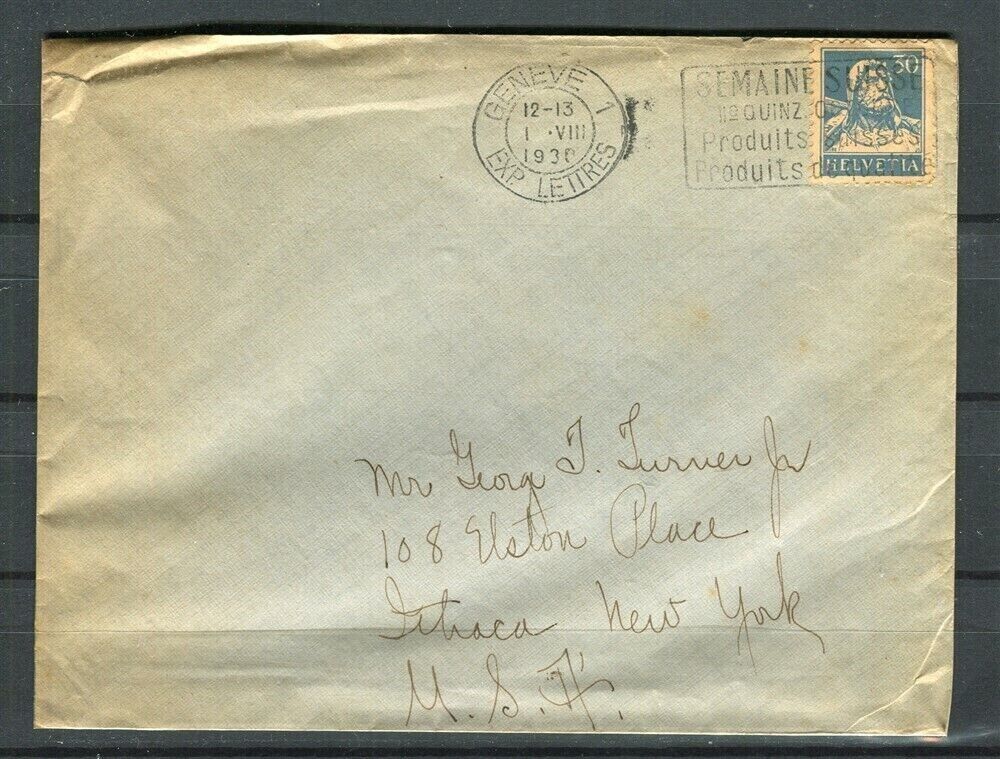 GENEVE 1
12-13
1 ·VIII
1930
EXP. LETTRES
SEMAINE SUISSE
IIe QUINZ. OCT
Produits suisses
Produits de qualité
30
HELVETIA
Mr Georg T. Turner Jr
108 Elston Place
Ithaca New York
U. S. A.